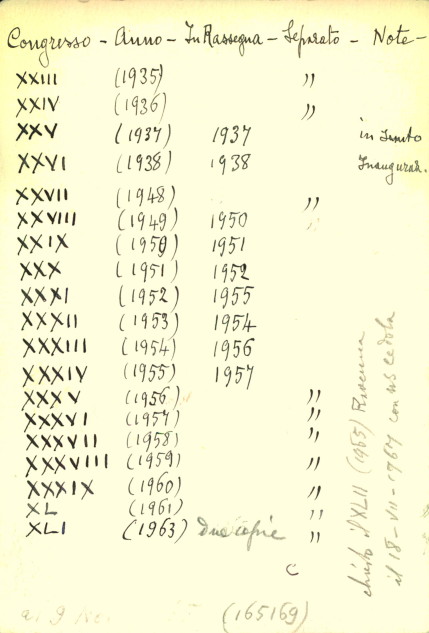 Congresso - Anno - In Rassegna - Separato - Note -
XXIII (1935) "
XXIV (1936) "
XXV (1937) 1937 in
XXVI (1938) 1938 Inaugurah.
XXVII (1948) "
XXVIII (1949) 1950 "
XXIX (1950) 1951
XXX (1951) 1952
XXXI (1952) 1955
XXXII (1953) 1954
XXXIII (1954) 1956
XXXIV (1955) 1957
XXXV (1956) "
XXXVI (1957) "
XXXVII (1958) "
XXXVIII (1959) "
XXXIX (1960) "
XL (1961) "
XLI (1963) Due copie "
chiesto il XLII (1965) Rassegna
il 18-VII-1967 con ns cedola
c
(165169)